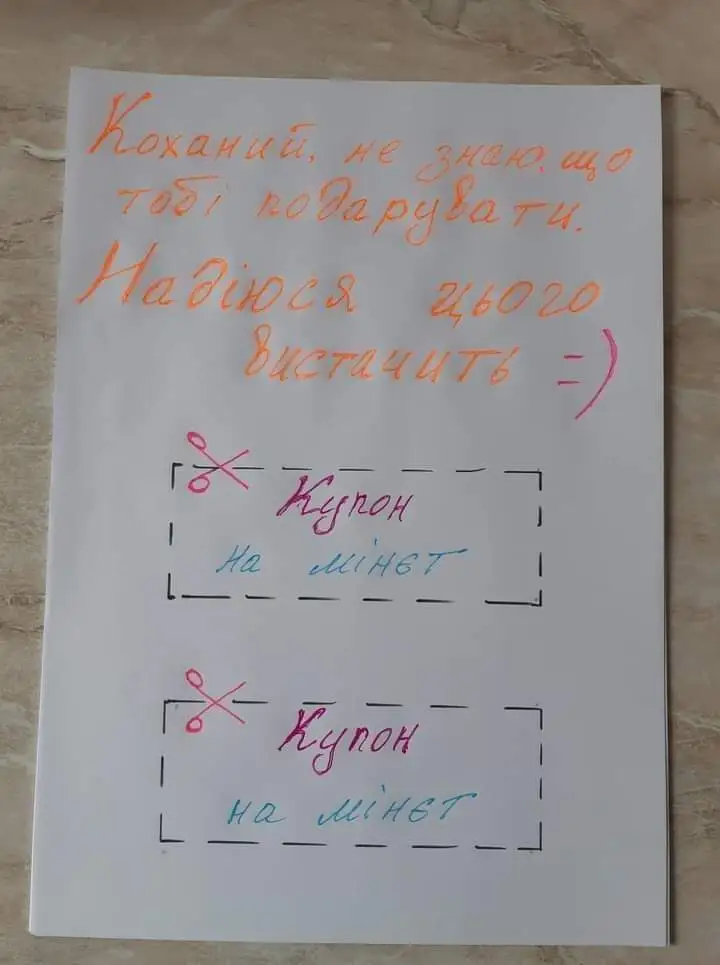 Коханий, не знаю, що
тобі подарувати.
Надіюся цього
вистачить =)
Купон
на мінєт
Купон
на мінєт